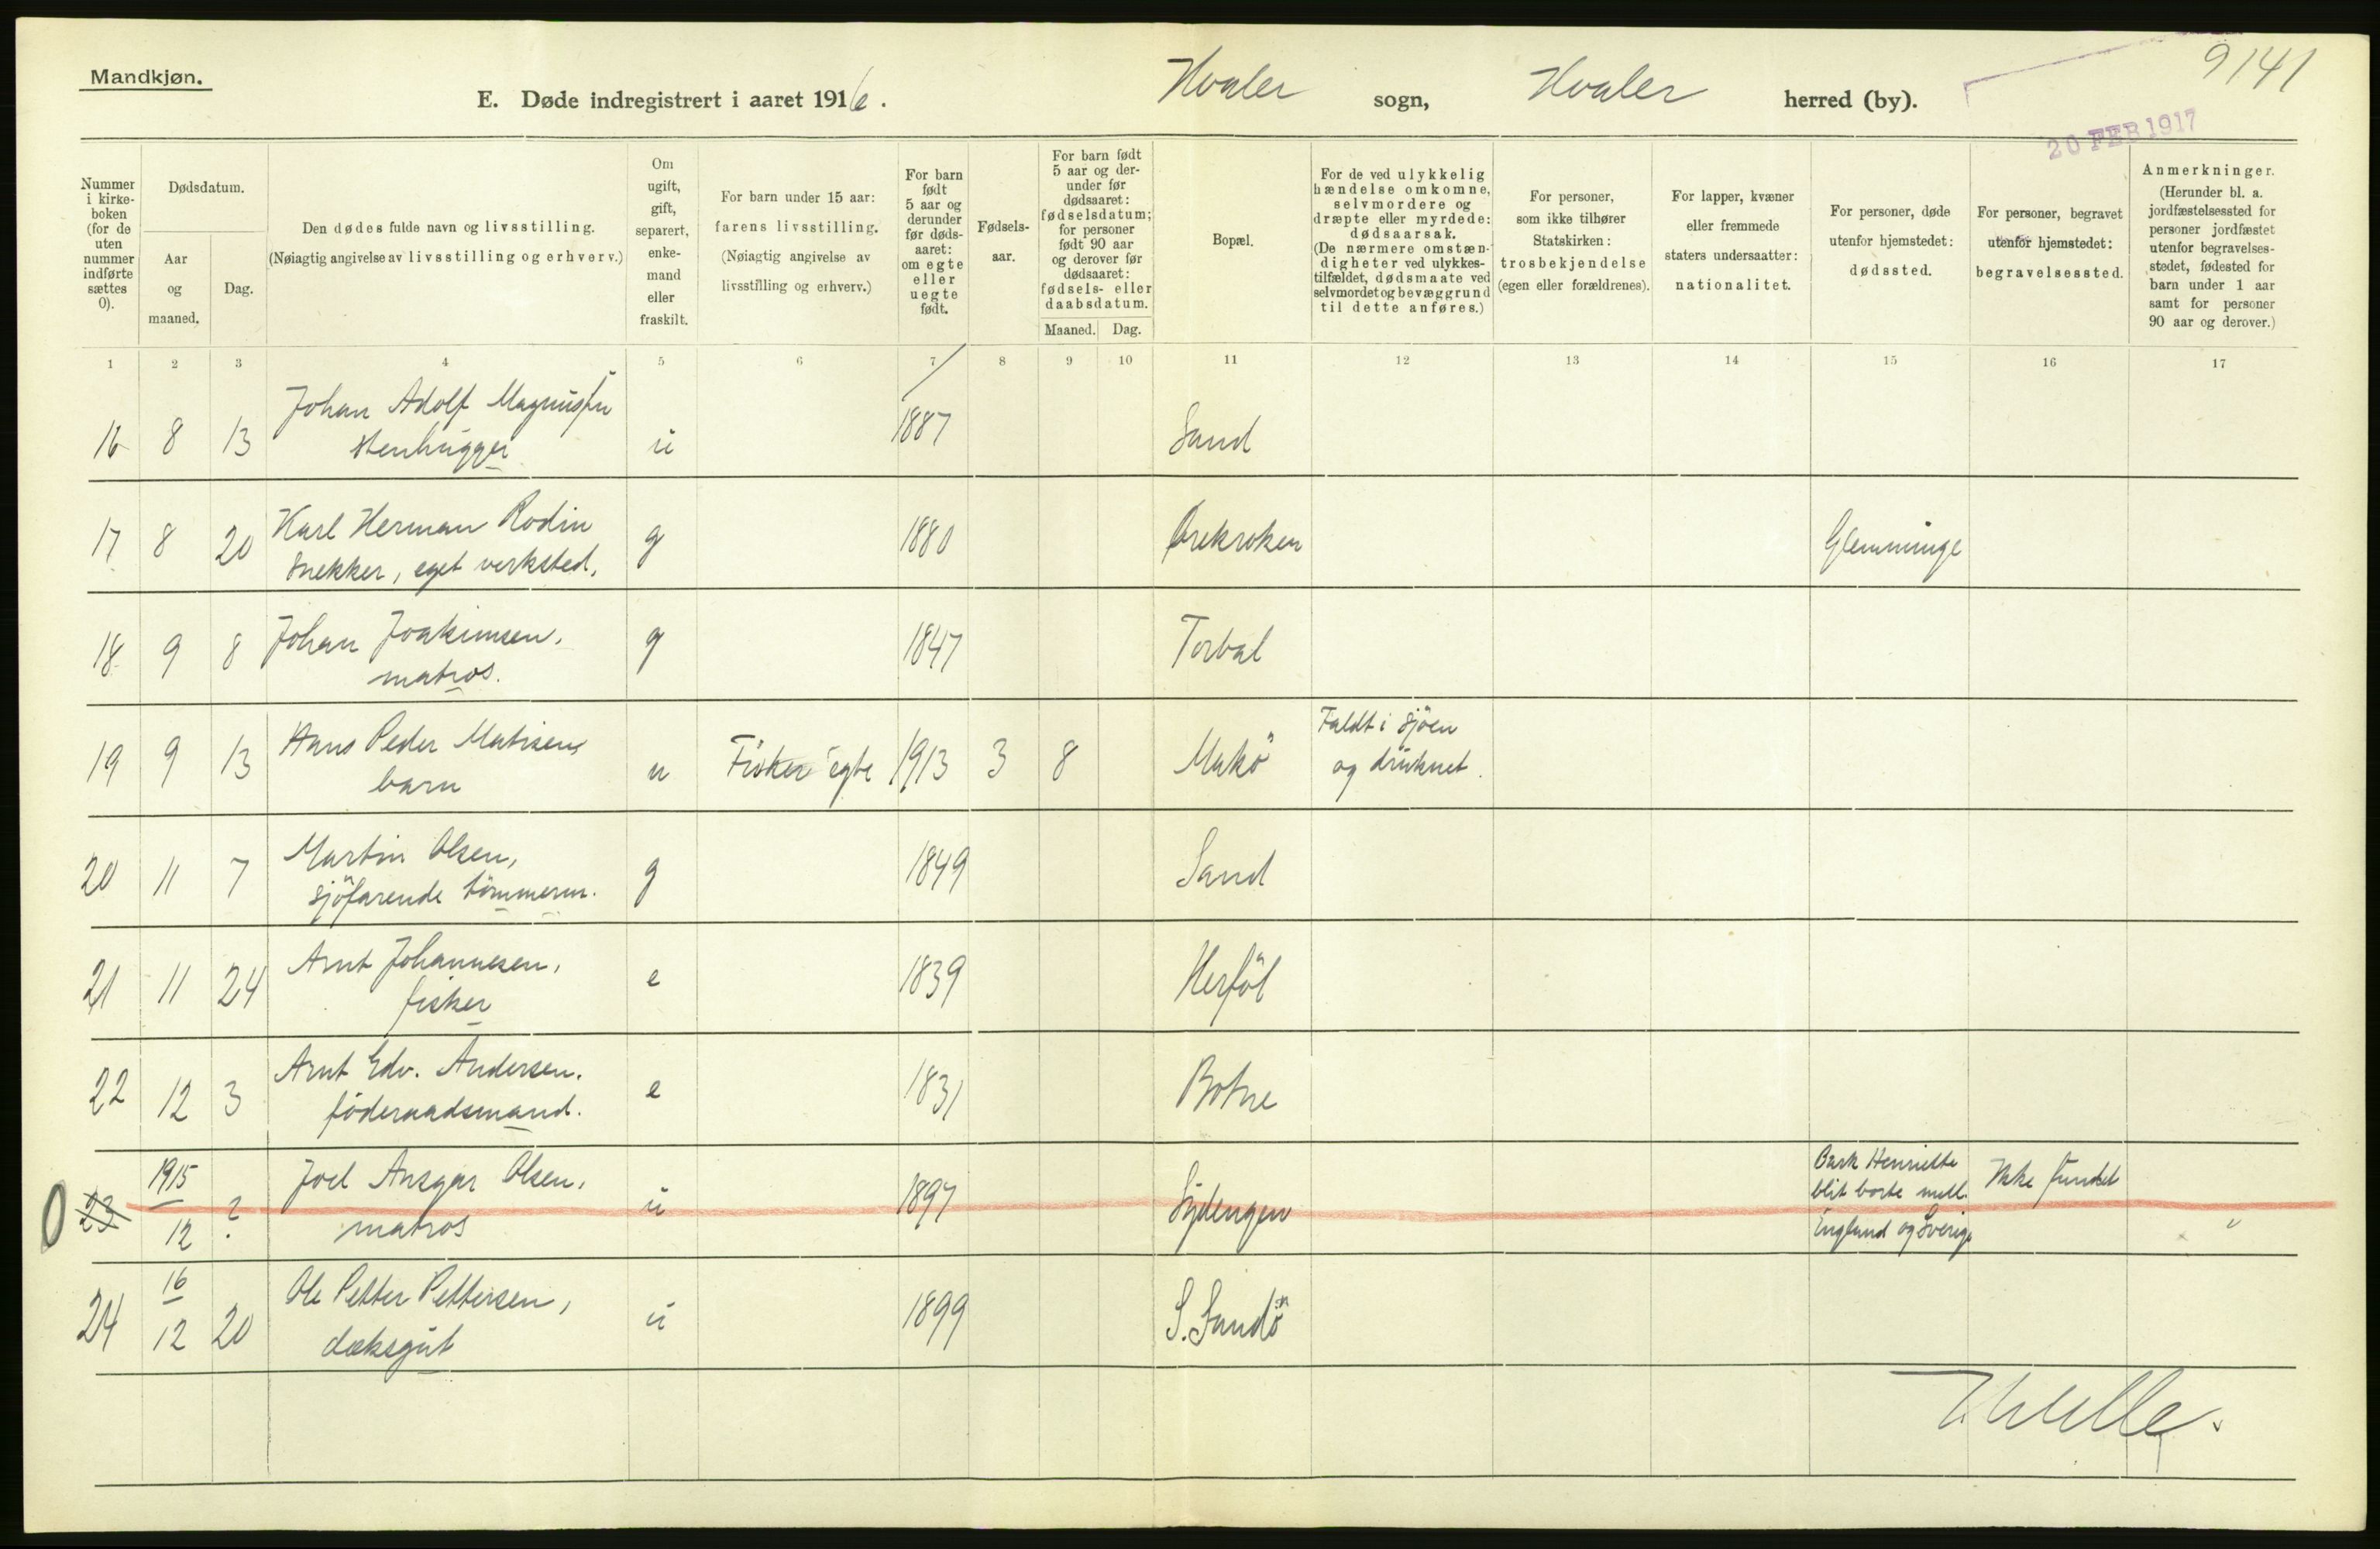 Mandkjøn.
E. Døde indregistrert i aaret 1916. Hvaler sogn, Hvaler herred (by).
9141
20 FEB 1917
Nummer i kirke-boken (for de uten nummer indførte sættes 0).
Dødsdatum.
Aar og maaned.
Dag.
Den dødes fulde navn og livsstilling.
(Nøiagtig angivelse av livsstilling og erhverv.)
Om ugift, gift, separert, enke-mand eller fraskilt.
For barn under 15 aar:
farens livsstilling.
(Nøiagtig angivelse av livsstilling og erhverv.)
For barn født 5 aar og derunder før døds-aaret: om egte eller uegte født.
Fødsels-aar.
For barn født 5 aar og der-under før dødsaaret: fødselsdatum; for personer født 90 aar og derover før dødsaaret: fødsels- eller daabsdatum.
Maaned. Dag.
Bopæl.
For de ved ulykkelig hændelse omkomne, selvmordere og dræpte eller myrdede: dødsaarsak. (De nærmere omstæn-digheter ved ulykkes-tilfældet, dødsmaate ved selvmordet og bevæggrund til dette anføres.)
For personer, som ikke tilhører Statskirken: trosbekjendelse (egen eller forældrenes).
For lapper, kvæner eller fremmede staters undersaatter: nationalitet.
For personer, døde utenfor hjemstedet: dødssted.
For personer, begravet utenfor hjemstedet: begravelsessted.
Anmerkninger. (Herunder bl. a. jordfæstelsessted for personer jordfæstet utenfor begravelses-stedet, fødested for barn under 1 aar samt for personer 90 aar og derover.)
1 2 3 4 5 6 7 8 9 10 11 12 13 14 15 16 17
16 8 13 Johan Adolf Magnussen
stenhugger u 1887 Sand
17 8 20 Karl Herman Rodin
Snekker, eget verksted. g 1880 Ørekroken Glemminge
18 9 8 Johan Joakimsen,
matros. g 1847 Torbal
19 9 13 Hans Peder Matisen,
barn u Fisker egte 1913 3 8 Makö Faldt i Sjöen
og druknet.
20 11 7 Martin Olsen,
sjöfarende tömmerm. g 1849 Sand
21 11 24 Arnt Johannesen,
fisker e 1839 Herföl
22 12 3 Arnt Edv. Andersen.
föderaadsmand. e 1831 Botne
0 23 1915
12 ? Joel Ansgar Olsen,
matros u 1897 Sydengen Bark Henriette
blit borte mell.
England og Sverige Ikke fundet "
24 16
12 20 Ole Petter Pettersen,
dæksgut u 1899 S. Sandö